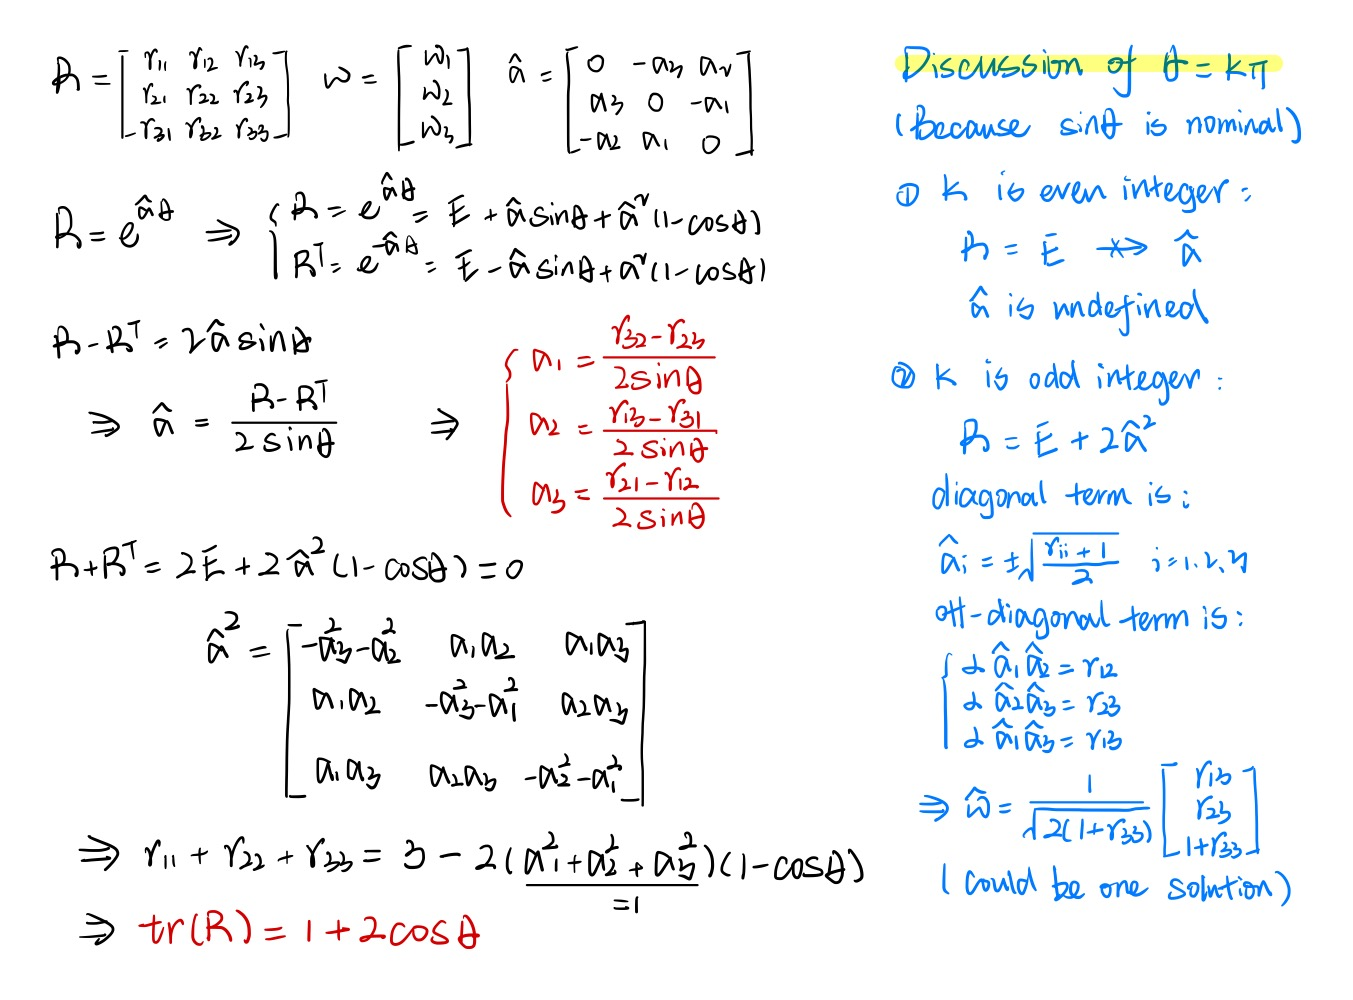 R = [r11 r12 r13; r21 r22 r23; r31 r32 r33]  w = [w1; w2; w3]  â = [0 -a3 a2; a3 0 -a1; -a2 a1 0]
R = e^{âθ} ⇒ { R = e^{âθ} = E + â sinθ + â²(1-cosθ)
R^T = e^{-âθ} = E - â sinθ + a²(1-cosθ)
R-R^T = 2â sinθ
⇒ â = (R-R^T)/(2 sinθ) ⇒ { a1 = (r32-r23)/(2sinθ)
a2 = (r13-r31)/(2 sinθ)
a3 = (r21-r12)/(2sinθ)
R+R^T = 2E + 2â²(1-cosθ) = 0
â² = [-a3²-a2² a1a2 a1a3; a1a2 -a3²-a1² a2a3; a1a3 a2a3 -a2²-a1²]
⇒ r11 + r22 + r33 = 3 - 2(a1²+a2²+a3²)(1-cosθ)
=1
⇒ tr(R) = 1+2cosθ
Discussion of θ = kπ
(Because sinθ is nominal)
① K is even integer:
R = E ↔ â
â is undefined
② K is odd integer:
R = E + 2â²
diagonal term is:
âi = ±√((rii + 1)/2) i=1,2,3
off-diagonal term is:
{ 2 â1â2 = r12
2 â2â3 = r23
2 â1â3 = r13
⇒ ŵ = 1/√(2(1+r33)) [r13; r23; 1+r33]
(could be one solution)